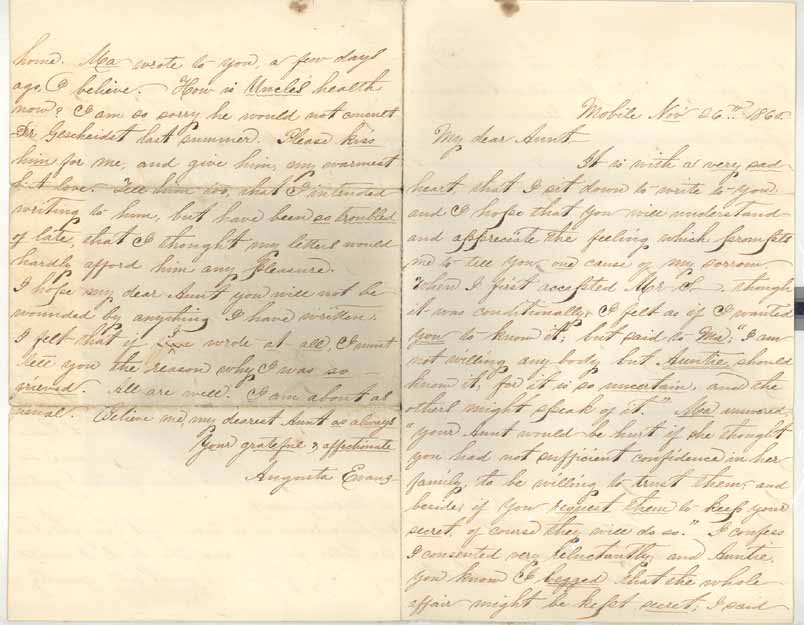 Mobile Nov 26th 1860
My dear Aunt
It is with a very sad
heart, that I sit down to write to you
and I hope that you will understand
and appreciate the feeling which prompts
me to tell you one cause of my sorrow
When I first accepted Mr S— though
it was conditionally, I felt as if I wanted
you to know it; but said to Ma; "I am
not willing any body but Auntie should
know it, for it is so uncertain, and the
others might speak of it." Ma answered,
"your Aunt would be hurt if she thought
you had not sufficient confidence in her
family, to be willing to trust them, and
besides, if you request them to keep your
secret, of course they will do so." I confess
I consented very reluctantly, and Auntie,
you know I begged that the whole
affair might be kept secret; I said
home. Ma wrote to you, a few days
ago, I believe. How is Uncle's health
now? I am so sorry he would not consult
Dr. Gescheidet last summer. Please kiss
him for me, and give him, my warmest
best love. Tell him too, that I intended
writing to him, but have been so troubled
of late, that I thought my letters would
hardly afford him any pleasure.
I hope my dear Aunt you will not be
wounded by anything I have written.
I felt that if I wrote at all, I must
tell you the reason why I was so
grieved. All are well. I am about as
usual. Believe me, my dearest Aunt as always
Your grateful & affectionate
Augusta Evans